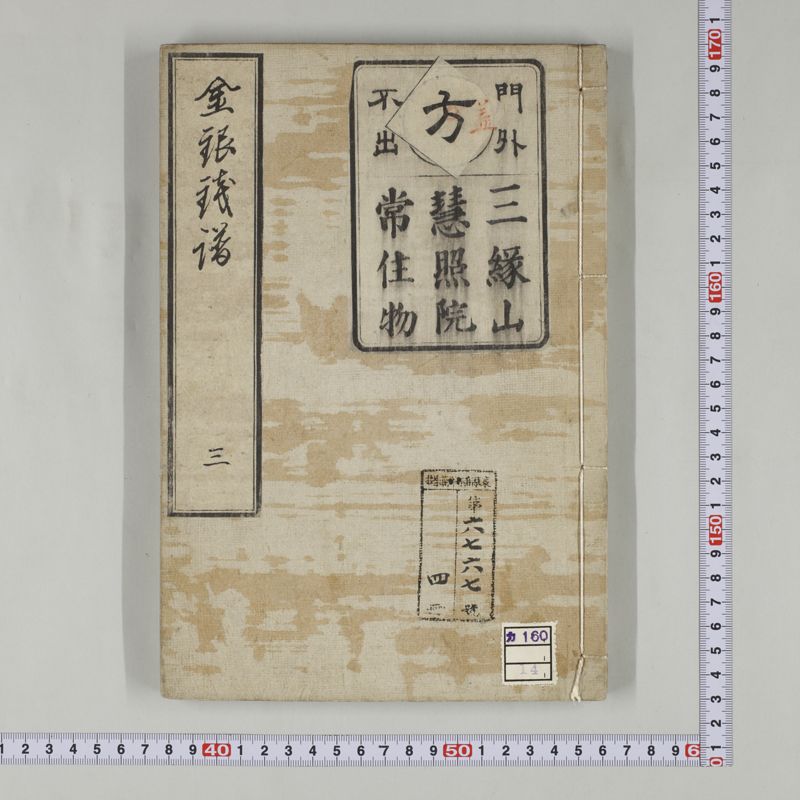 金銀銭譜
三
門外
不出
方
三縁山
慧照院
常住物
第六七六七號
四
カ 160
14
1 2 3 4 5 6 7 8 9 40 1 2 3 4 5 6 7 8 9 50 1 2 3 4 5 6 7 8 9 6
1 170 9 8 7 6 5 4 3 2 1 160 9 8 7 6 5 4 3 2 1 150 9 8 7 6 5 4 3 2 1 0